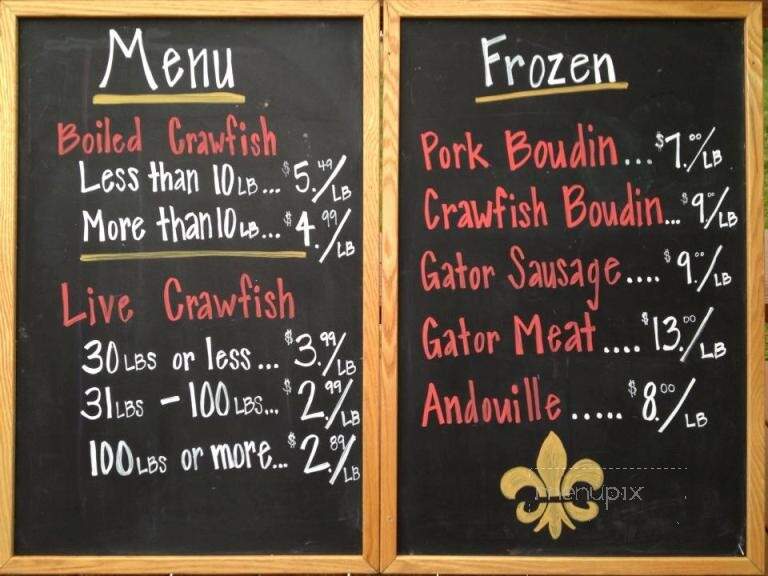 Menu
Boiled Crawfish
Less than 10 LB... $5.49/LB
More than 10 LB... $4.99/LB
Live Crawfish
30 LBS or less... $3.99/LB
31 LBS - 100 LBS... $2.99/LB
100 LBS or more... $2.89/LB
Frozen
Pork Boudin... $7.00/LB
Crawfish Boudin... $9.00/LB
Gator Sausage.... $9.00/LB
Gator Meat.... $13.00/LB
Andouille..... $8.00/LB
menupix